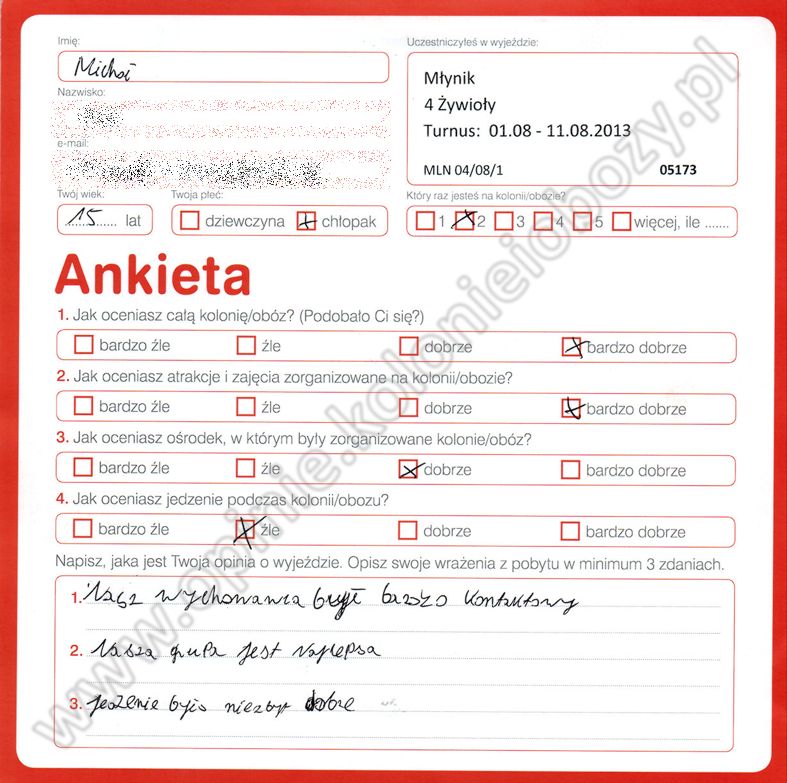 Imię:
Uczestniczyłeś w wyjeździe:
Michał
Młynik
4 Żywioły
Turnus: 01.08 - 11.08.2013
MLN 04/08/1 05173
Nazwisko:
e-mail:
Twój wiek:
Twoja płeć:
Który raz jesteś na kolonii/obozie?
15 lat
dziewczyna chłopak
1 2 3 4 5 więcej, ile .......
Ankieta
1. Jak oceniasz całą kolonię/obóz? (Podobało Ci się?)
bardzo źle źle dobrze bardzo dobrze
2. Jak oceniasz atrakcje i zajęcia zorganizowane na kolonii/obozie?
bardzo źle źle dobrze bardzo dobrze
3. Jak oceniasz ośrodek, w którym były zorganizowane kolonie/obóz?
bardzo źle źle dobrze bardzo dobrze
4. Jak oceniasz jedzenie podczas kolonii/obozu?
bardzo źle źle dobrze bardzo dobrze
Napisz, jaka jest Twoja opinia o wyjeździe. Opisz swoje wrażenia z pobytu w minimum 3 zdaniach.
1. Nasz wychowawca był bardzo kontaktowy
2. Nasza grupa jest najlepsa
3. jedzenie było niezbyt dobre
www.opinie.kolonieiobozy.pl